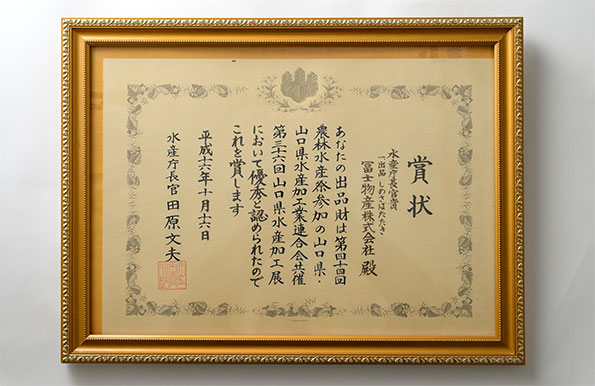 賞状
水産庁長官賞
一出品 しめさばたたき
冨士物産株式会社 殿
あなたの出品財は第四十四回
農林水産祭参加の山口県・
山口県水産加工業連合会共催
第三十六回山口県水産加工展
において優秀と認められたので
これを賞します
平成十六年十月十六日
水産庁長官 田原文夫